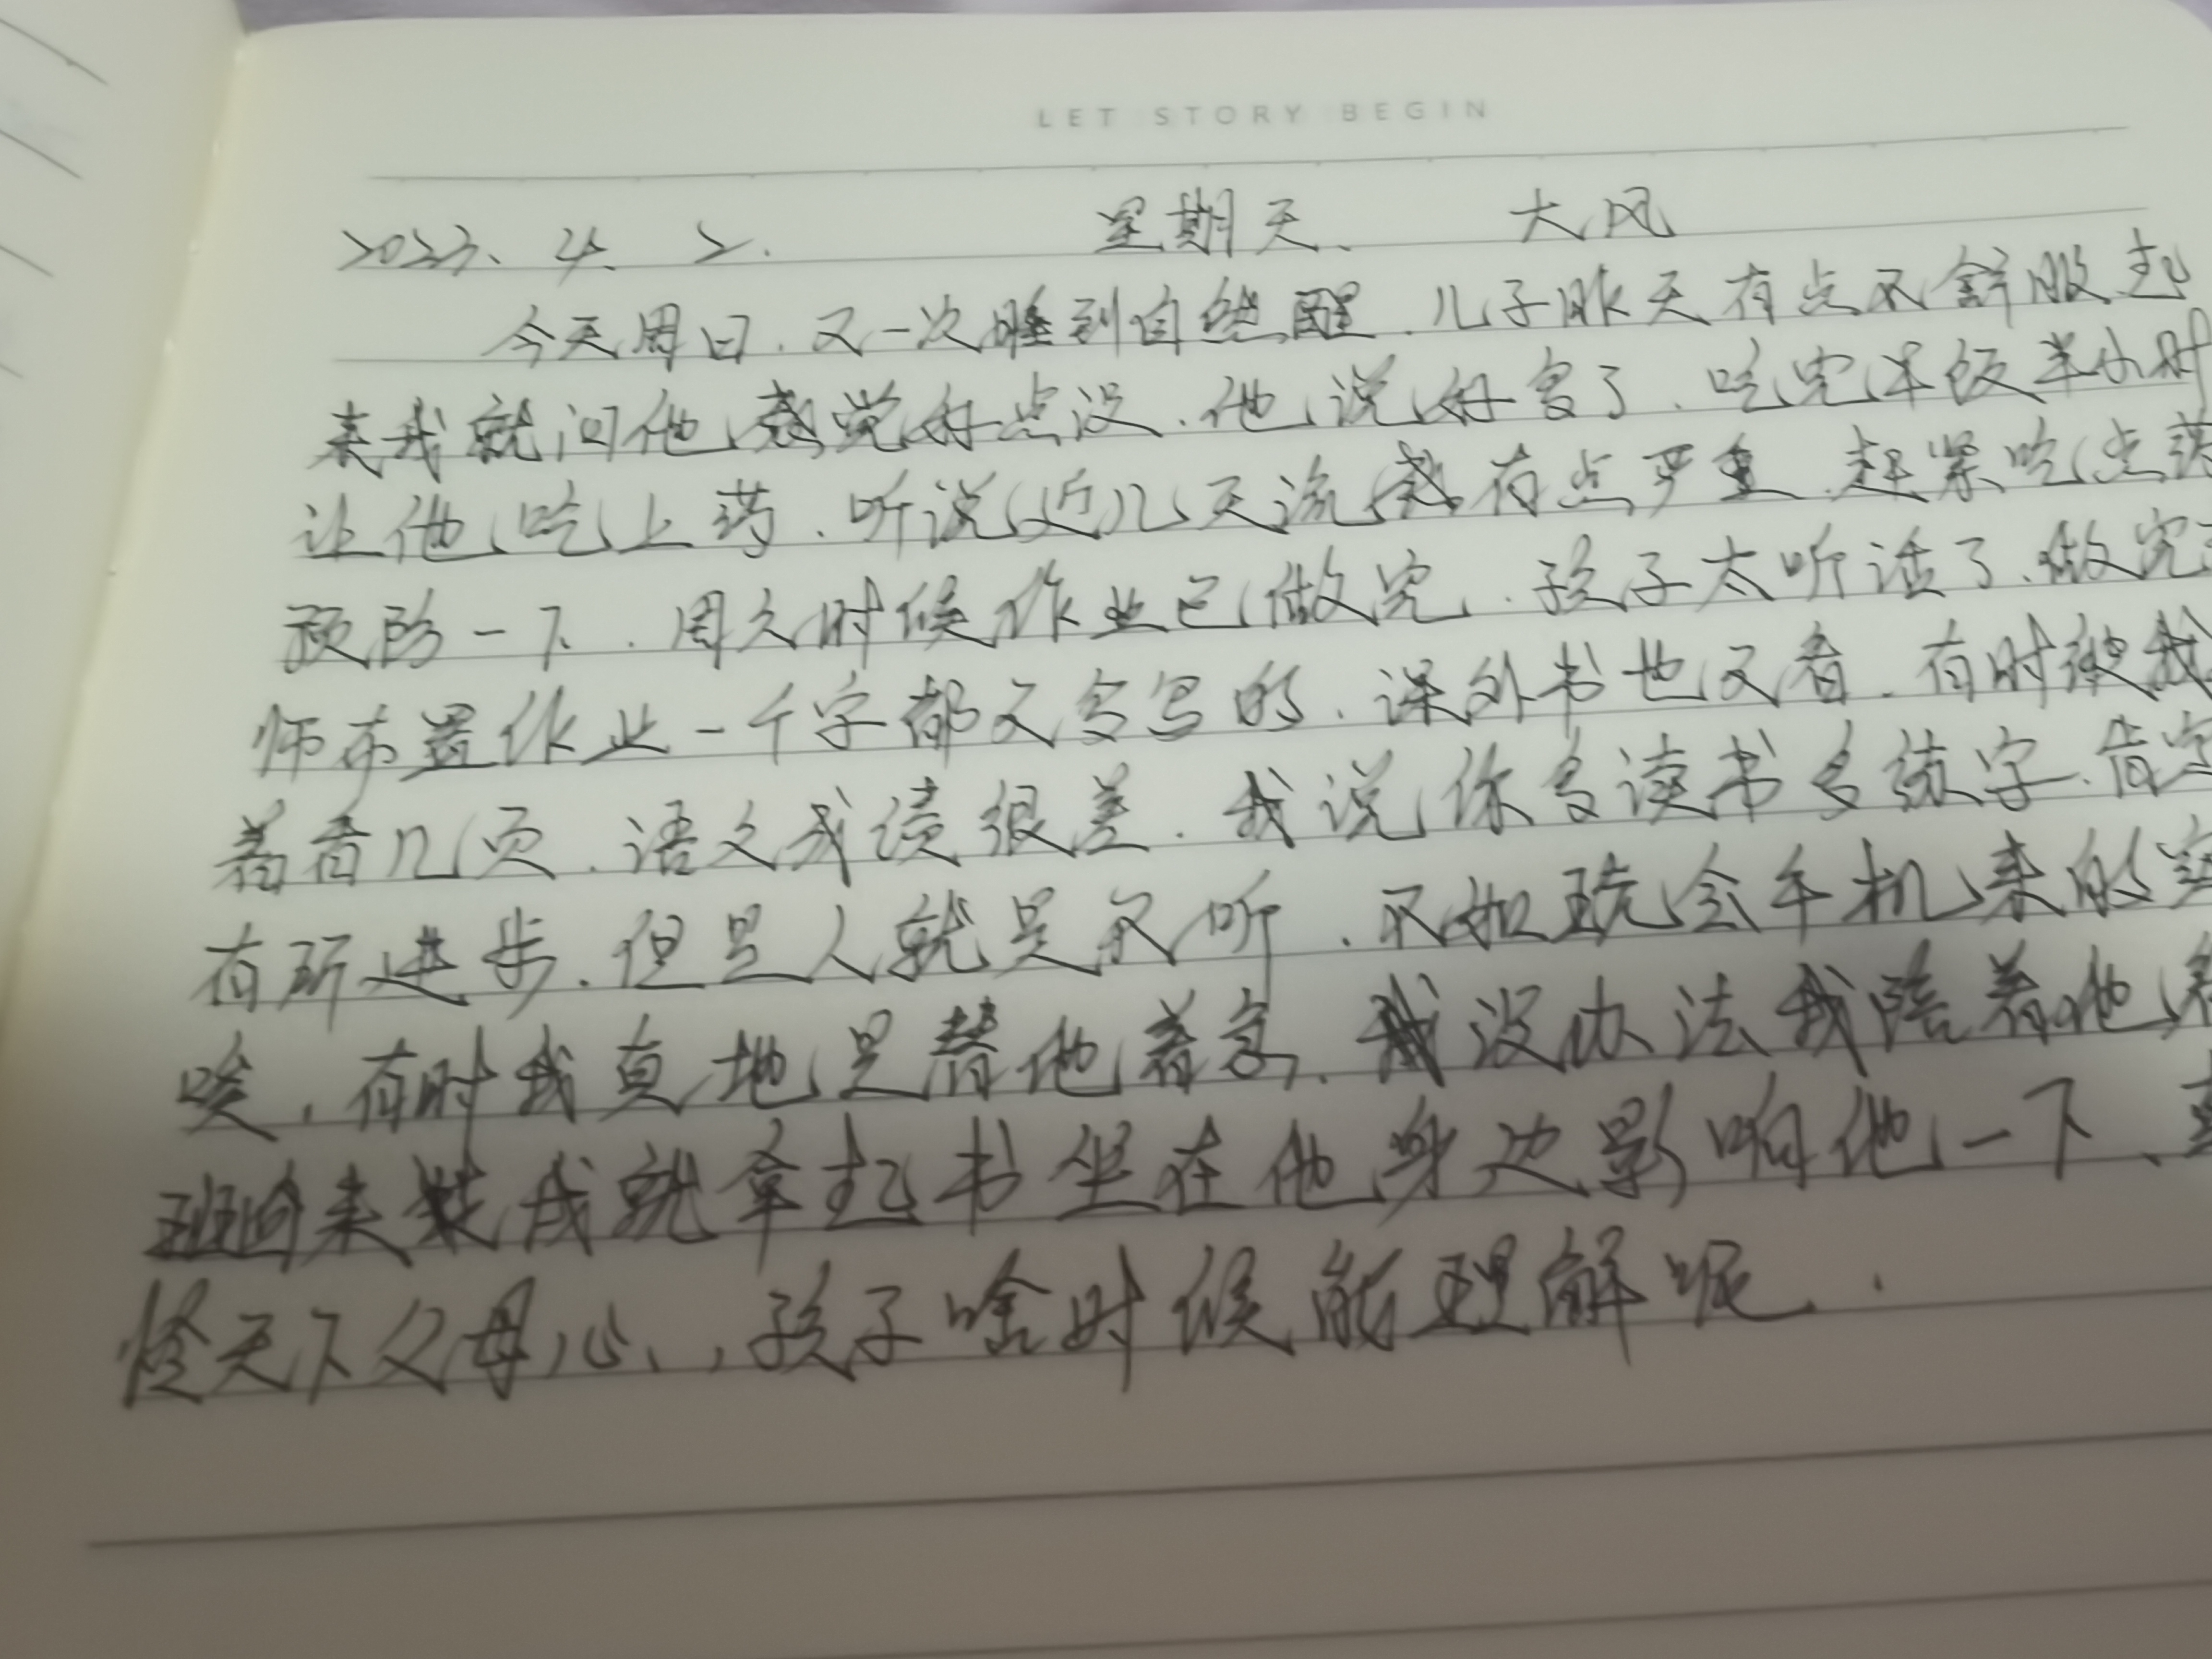 LET STORY BEGIN
2023、4、2. 星期天、 大风
今天周日.又一次睡到自然醒.儿子昨天有点不舒服起
来我就问他感觉好点没.他说好多了.吃完早饭半小时
让他吃上药.听说近几天流感有点严重.赶紧吃点药
预防一下.周六时候作业已做完.孩子太听话了.做完
师布置作业一个字都不多写的.课外书也不看.有时被我
着看几页.语文成绩很差.我说你多读书多练字.肯定
有所进步.但是人就是不听.不如玩会手机来的
唉.有时我真地是替他着急.我没办法我陪着他
班回来我就拿起书坐在他身边影响他一下、
怪天下父母心、,孩子啥时候能理解呢.